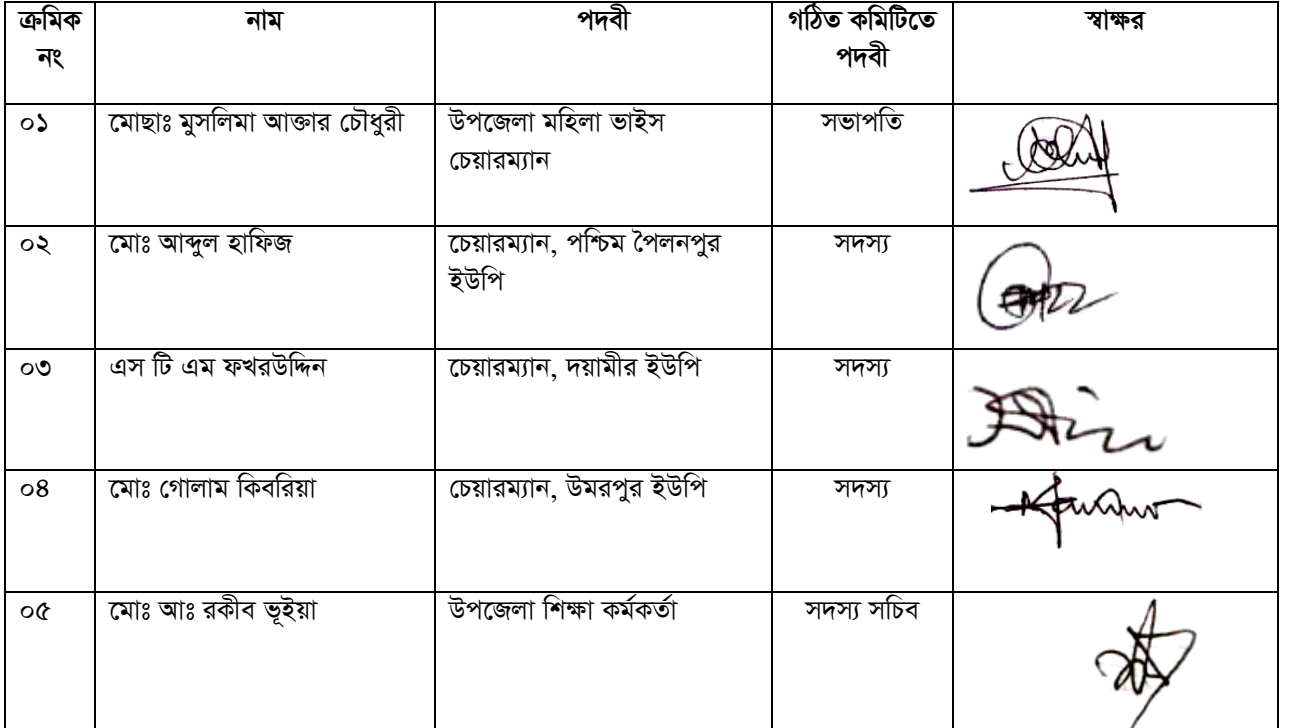 ক্রমিক নং নাম পদবী গঠিত কমিটিতে পদবী স্বাক্ষর
০১ মোছাঃ মুসলিমা আক্তার চৌধুরী উপজেলা মহিলা ভাইস চেয়ারম্যান সভাপতি
০২ মোঃ আব্দুল হাফিজ চেয়ারম্যান, পশ্চিম পৈলনপুর ইউপি সদস্য
০৩ এস টি এম ফখরউদ্দিন চেয়ারম্যান, দয়ামীর ইউপি সদস্য
০৪ মোঃ গোলাম কিবরিয়া চেয়ারম্যান, উমরপুর ইউপি সদস্য
০৫ মোঃ আঃ রকীব ভূইয়া উপজেলা শিক্ষা কর্মকর্তা সদস্য সচিব